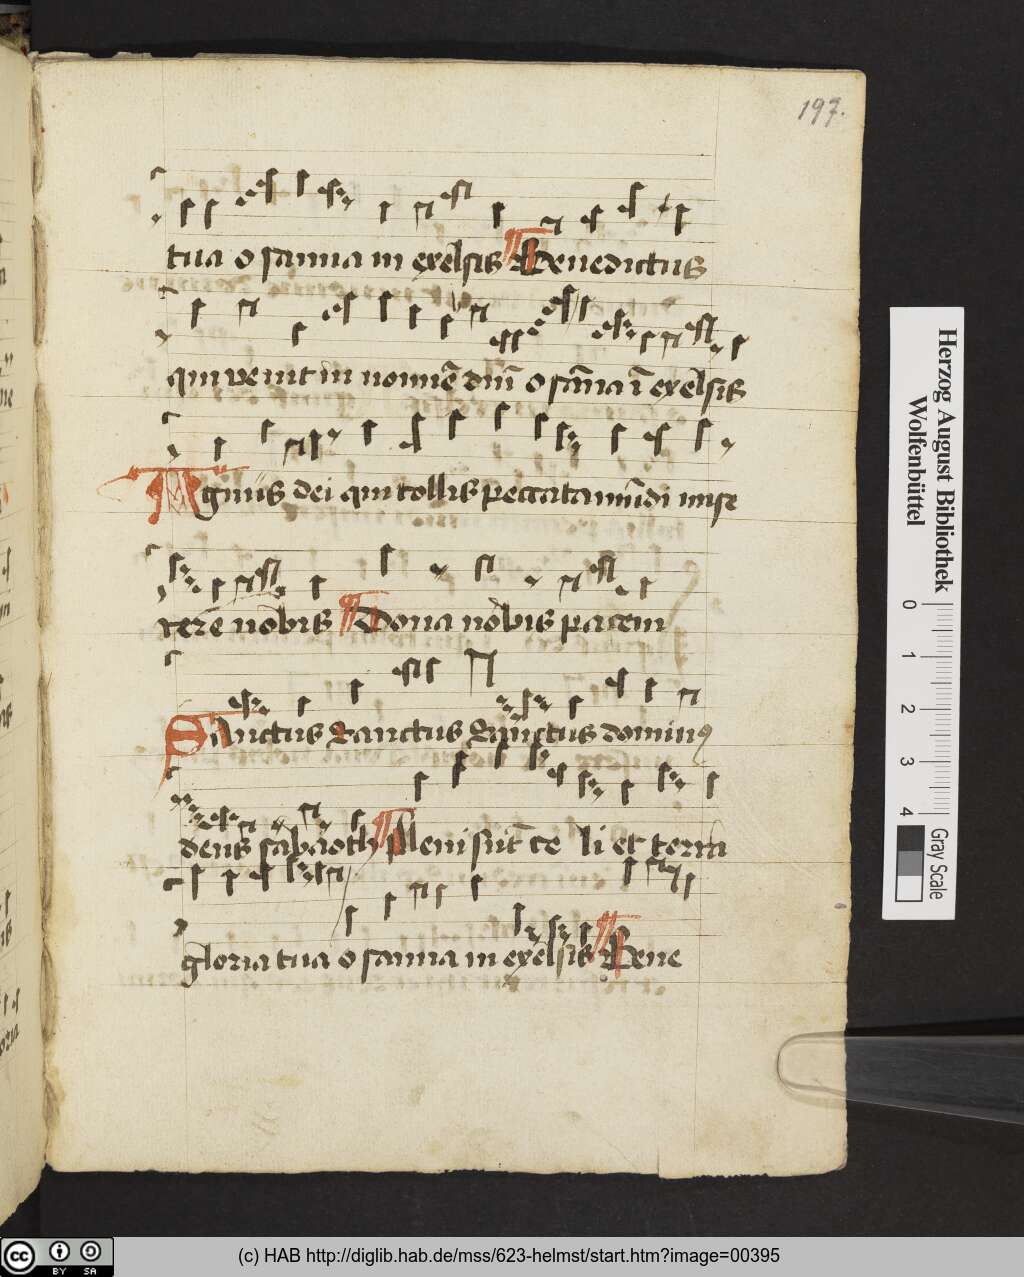 197.
tua o sanna in exelsis Benedictus
qui ve nit in nomīe dnī o sāna ī exelsis
Agnus dei qui tollis peccata mūdi mise
rere nobis Dona nobis pacem
Sanctus Sanctus Sanctus dominꝰ
deus sabaoth Pleni sūt ce li et terra
gloria tua o sanna in exelsis Bene
Herzog August Bibliothek
Wolfenbüttel
0 1 2 3 4
Gray Scale
cc BY SA
(c) HAB http://diglib.hab.de/mss/623-helmst/start.htm?image=00395